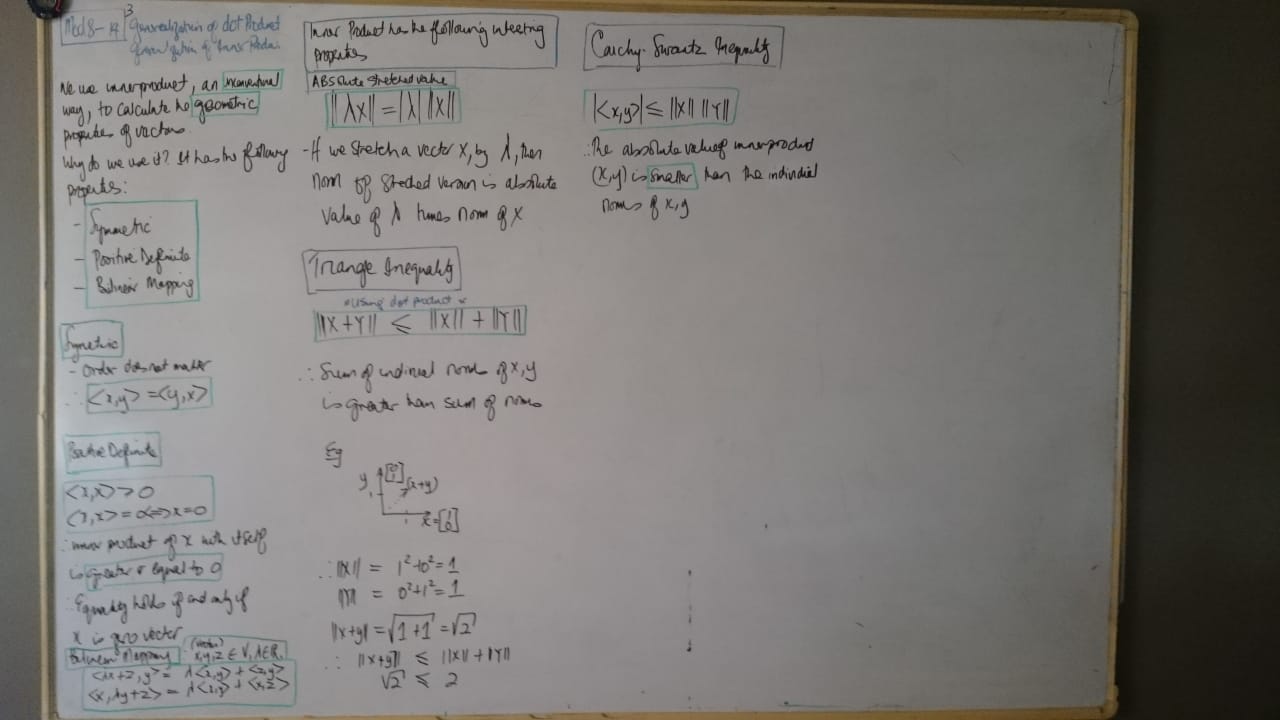 Mod 8-14
3
Generalization of dot Product
generalization of Inner Produ.
We use innerproduct, an inconventinal
way, to calculate the geometric
properties of vectors.
Why do we use it? It has the following
properties:
- Symmetric
- Positive Definite
- Bilinear Mapping
Symetric
- Order does not matter
∴ <x,y> = <y,x>
Positive Definite
<x,x> > 0
<x,x> = 0 <=> x = 0
∴ inner product of x with itself
is greater or equal to 0
∴ Equality holds if and only if
x is zero vector
Bilinear Mapping: (vectors) x,y,z ∈ V, λ∈R,
<λx+z,y> = λ<x,y> + <z,y>
<x,λy+z> = λ<x,y> + <x,z>
Inner Product has the following interesting
properties
ABSolute stretched value
||λx|| = |λ| ||x||
- If we stretch a vector x, by λ, then
norm of streched version is absolute
value of λ times norm of x
Triangle Inequality
*Using dot product*
||x+Y|| ≤ ||x|| + ||Y||
∴ Sum of norms of x,y
is greater than sum of norms
Eg
y [0 1] (x+y)
1
1 x=[1 0]
∴ ||x|| = 1²+0² = 1
||Y|| = 0²+1² = 1
||x+y|| = √1+1 = √2
∴ ||x+y|| ≤ ||x|| + ||Y||
√2 ≤ 2
Cauchy-Swartz Inequality
|<x,y>| ≤ ||x|| ||Y||
∴ The absolute value of innerproduct
(x,y) is smaller than the individial
norms of x,y